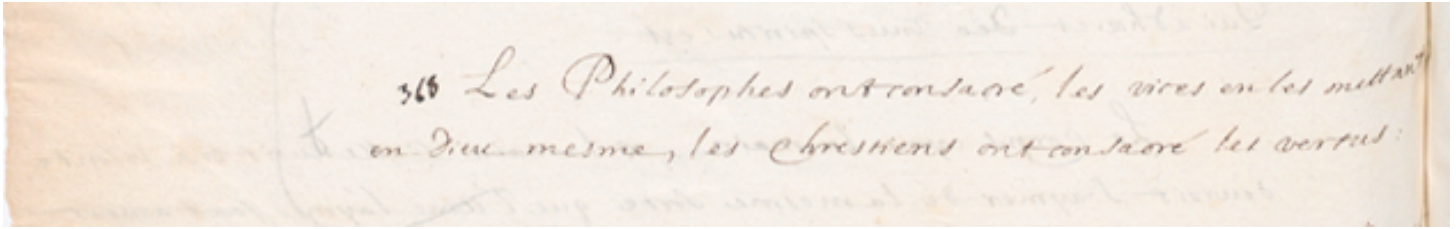 368 Les Philosophes ont consacré, les vices en les mettant
en dieu mesme, les chrestiens ont consacré les vertus: